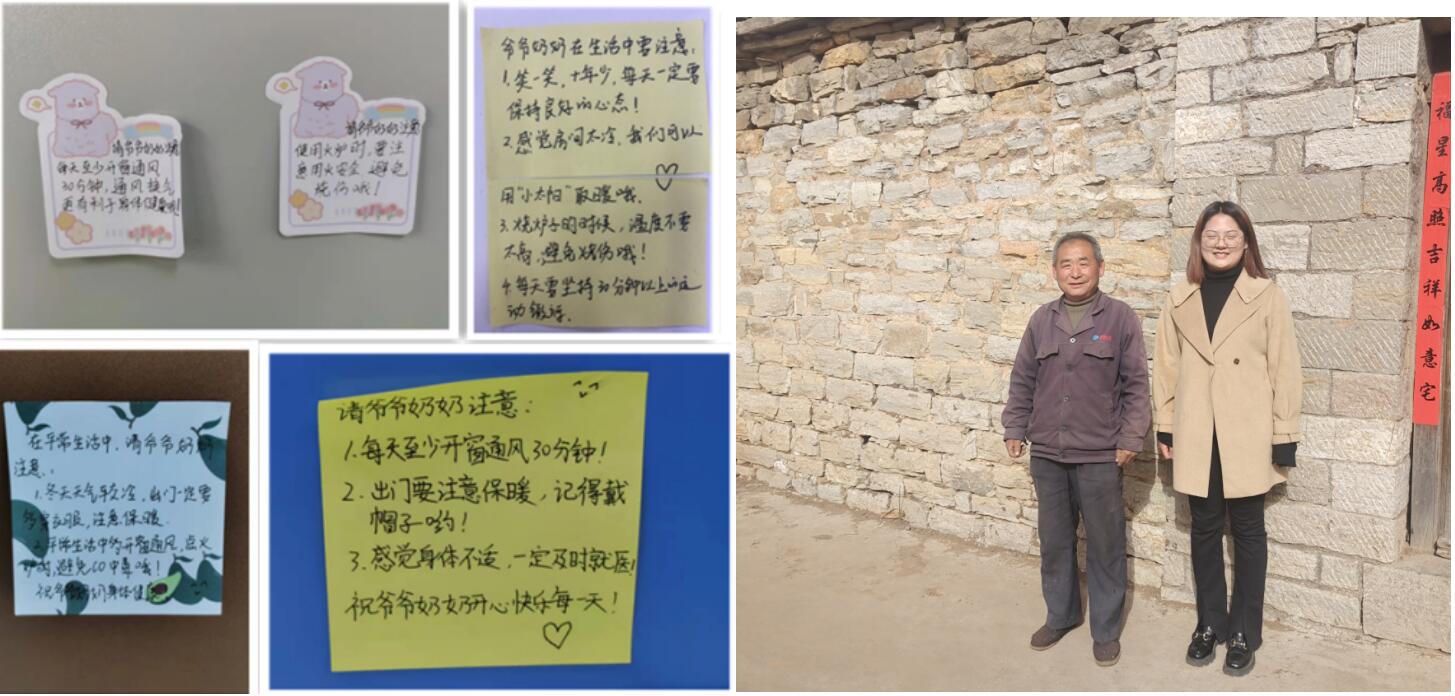 请爷爷奶奶注意
每天至少开窗通风
30分钟,通风换气
更有利于身体健康哦!
请爷爷奶奶注意
使用火炉时,要注
意用火安全 避免
烧伤哦!
爷爷奶奶在生活中要注意:
1.笑一笑,十年少,每天一定要
保持良好的心态!
2.感觉房间太冷,我们可以
用“小太阳”取暖哦.
3.烧炉子的时候,温度不要
太高,避免烧伤哦!
4.每天要坚持30分钟以上的运
动锻炼.
在平常生活中,请爷爷奶奶
注意:
1.冬天天气较冷,我们一定要
多穿衣服,注意保暖.
2.平常生活中多开窗通风,点火
炉时,避免CO中毒哦!
祝爷爷奶奶身体健
请爷爷奶奶注意:
1.每天至少开窗通风30分钟!
2.出门要注意保暖,记得戴
帽子哟!
3.感觉身体不适,一定及时就医!
祝爷爷奶奶开心快乐每一天!
福星高照吉祥如意宅